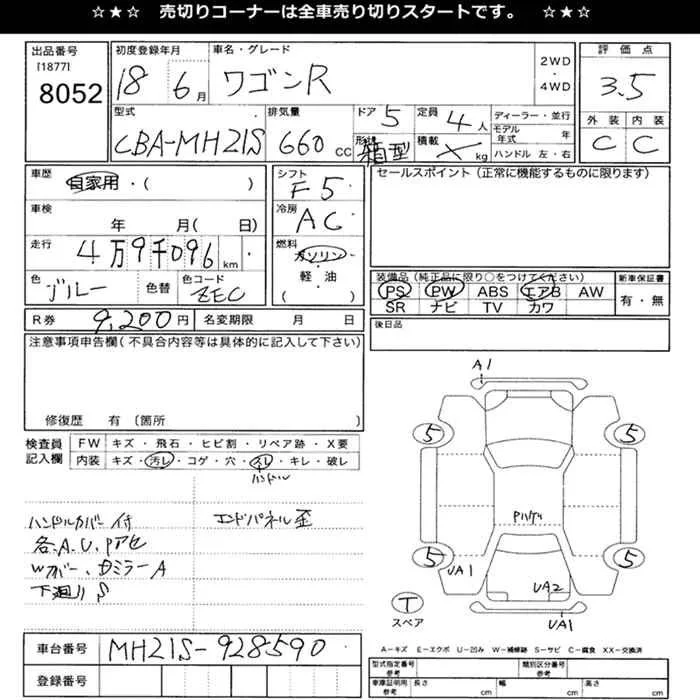 ☆★☆ 売切りコーナーは全車売り切りスタートです。 ☆★☆
出品番号
[1877]
8052
初度登録年月
18 6月
車名・グレード
ワゴンR
2WD
・
4WD
評価点
3.5
型式
CBA-MH21S
排気量
660 CC
ドア 5
形状 箱型
定員 4人
積載 kg
ディーラー・並行
モデル年式 年
ハンドル 左・右
外装 内装
C C
車歴
自家用・( )
シフト
F5
セールスポイント(正常に機能するものに限ります)
車検
年 月( 日)
冷房
AC
走行
4万9千096 km
燃料
ガソリン
軽・油
( )
色
ブルー
色替
色コード
ZEC
装備品(純正品に限り○をつけてください)
PS PW ABS エアB AW
SR ナビ TV カワ
新車保証書
有・無
R券 9,200円
名変期限 月 日
後日品
注意事項申告欄(不具合内容等は具体的に記入して下さい)
修復歴 有 〔箇所 〕
検査員
記入欄
FW キズ・飛石・ヒビ割・リペア跡・X要
内装 キズ・汚レ・コゲ・穴・スレ・キレ・破レ
ハンドル
ハンドルカバー付
エンドパネル歪
各、A、U、Pアセ
Wカバー、ドミラーA
下廻りS
A1
5
5
5
5
UA1
UA2
UA1
T
スペア
A-キズ E-エクボ U-凹み W-補修跡 S-サビ C-腐食 XX-交換済
車台番号 MH21S-928590
登録番号
型式指定番号
参考
類別区分番号
参考
車庫証明用
参考
長さ cm
幅 cm
高さ cm